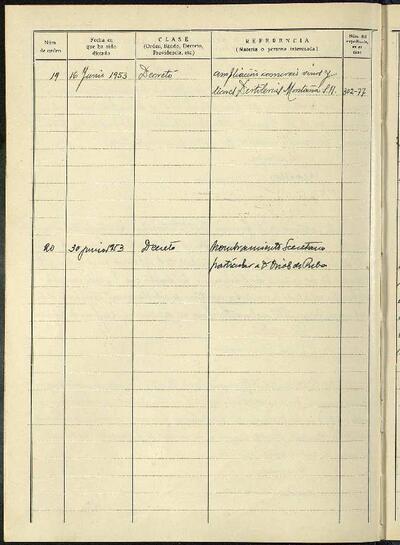 Núm. de orden
Fecha en que ha sido dictado
CLASE
(Orden, Bando, Decreto, Providencia, etc.)
REFERENCIA
(Materia o persona interesada)
Núm. del expediente, en su caso
19 16 Junio 1953 Decreto ampliación comercio vinos y
licores Destilerias Montaña S.A. 302-77
20 30 junio 1953 Decreto Nombramiento Secretario
particular a D. Oriol de